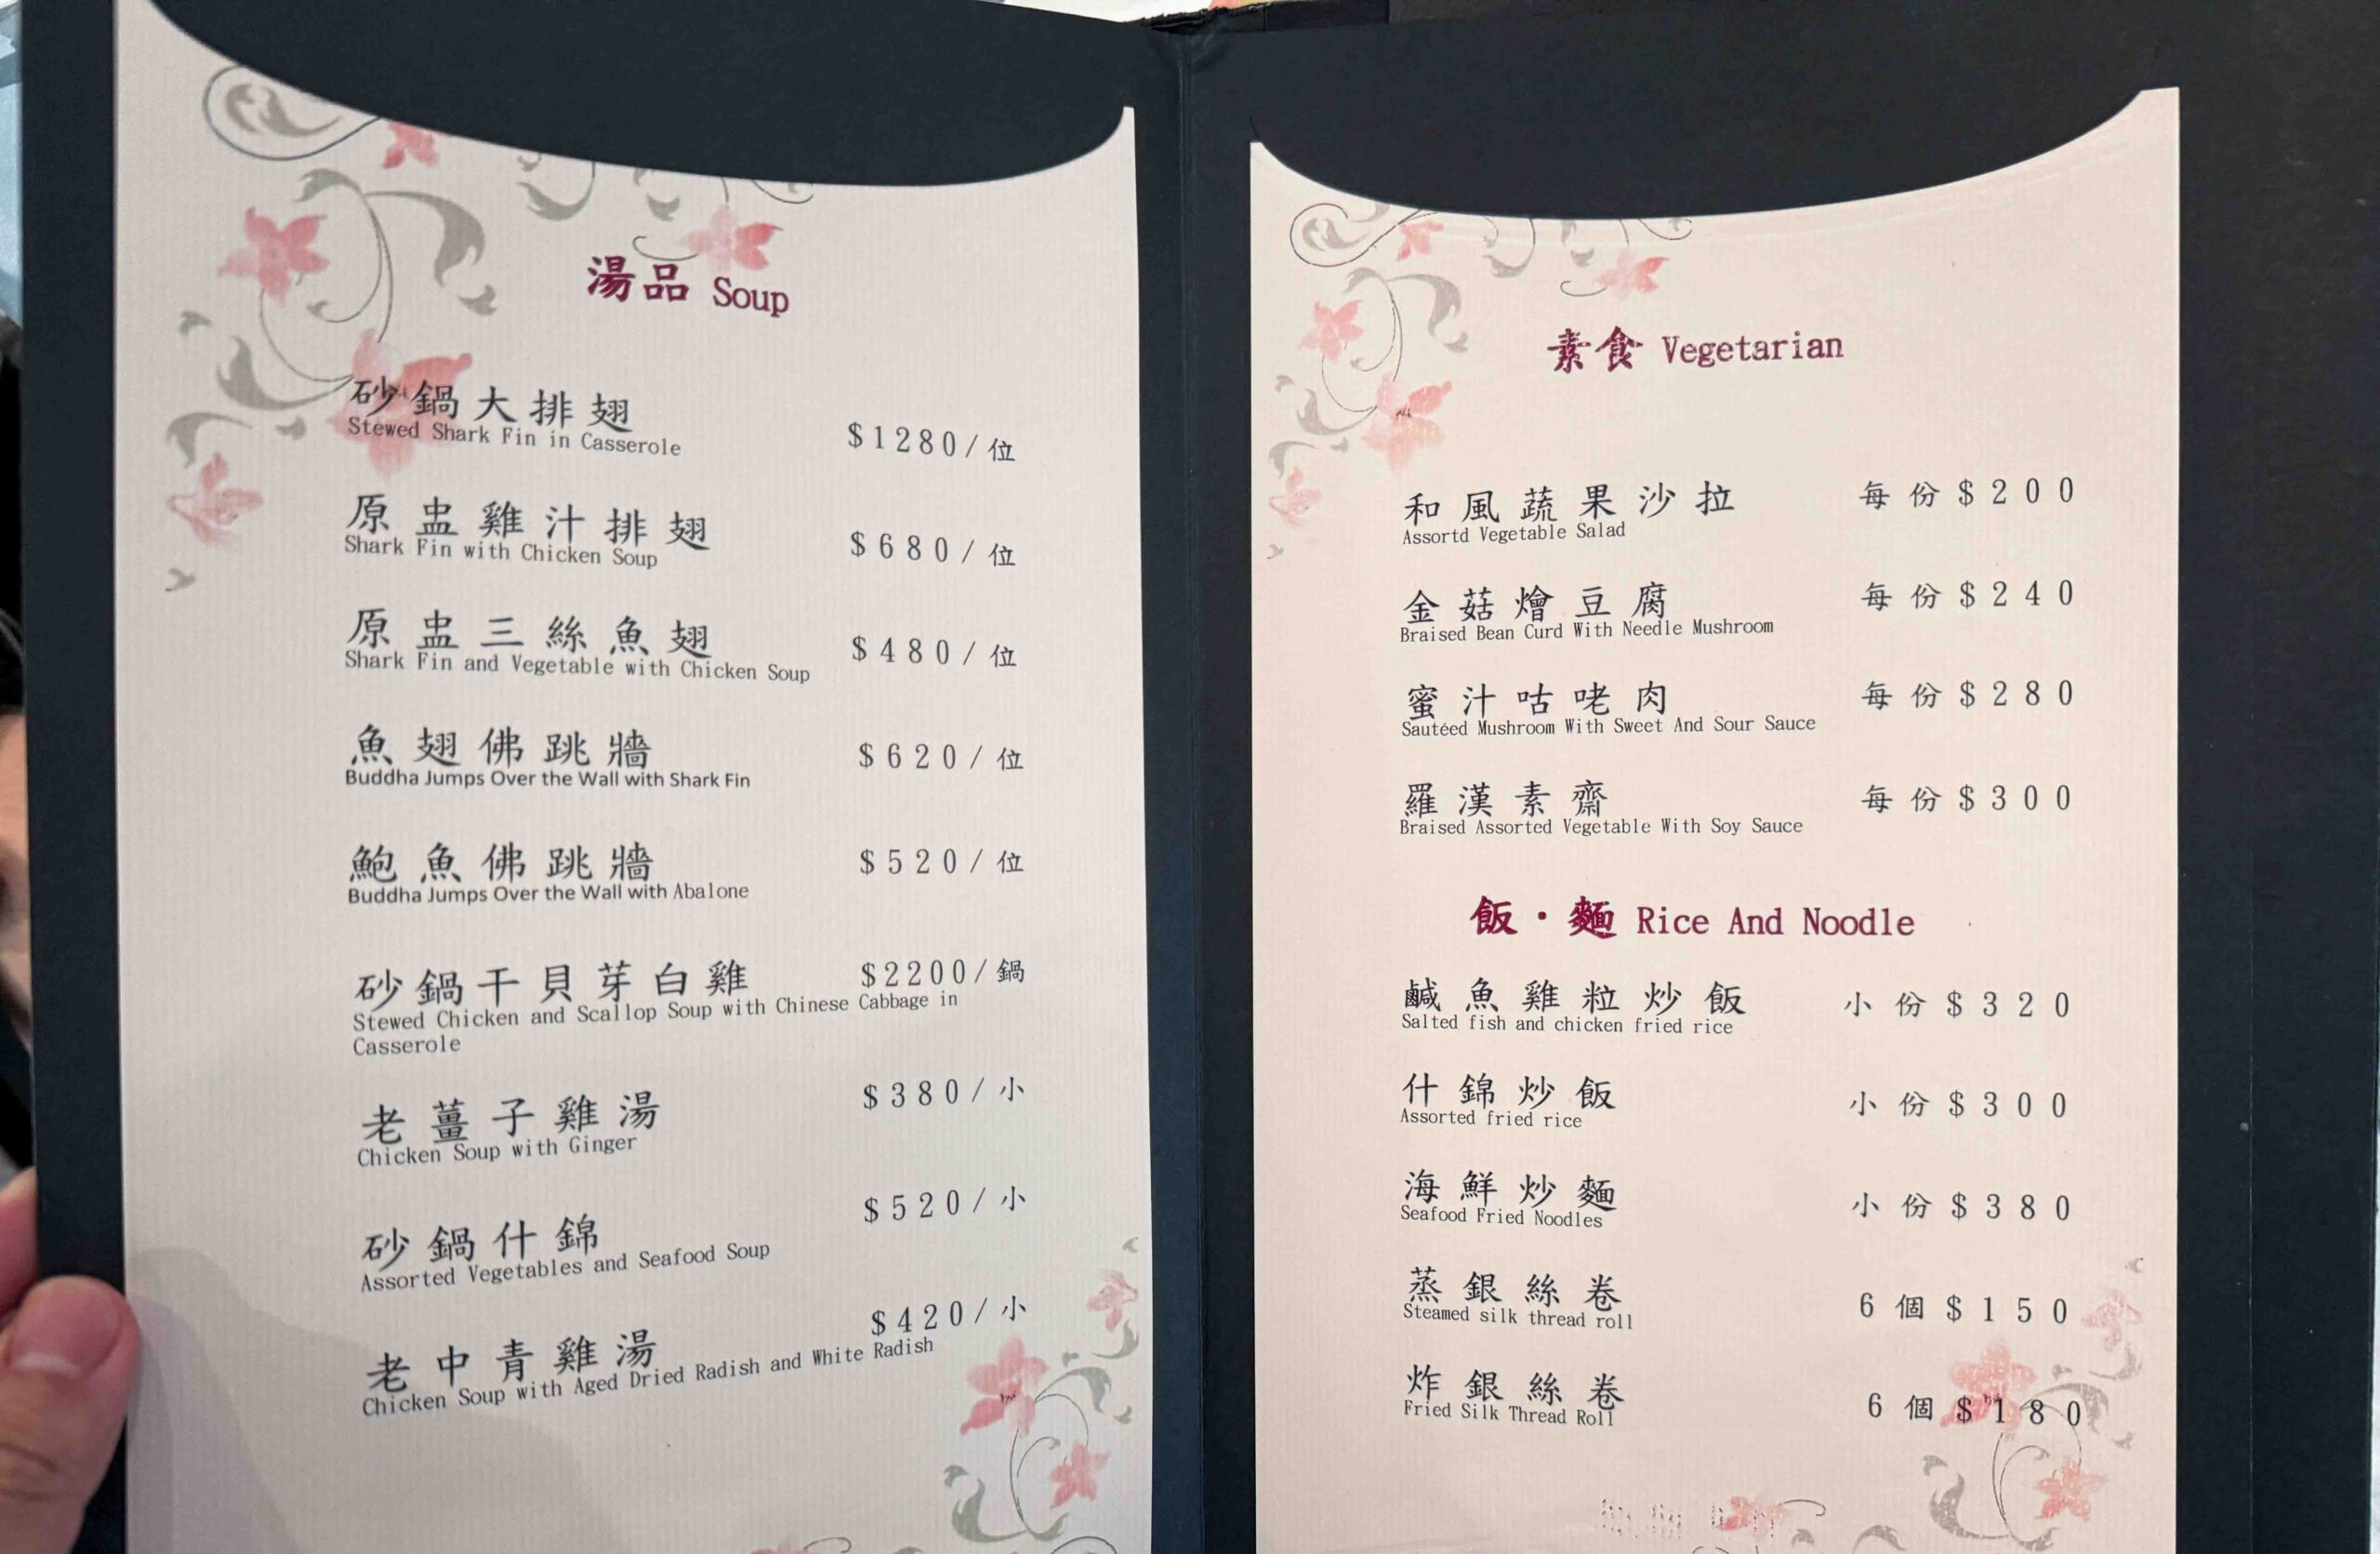 湯品 Soup
砂鍋大排翅
Stewed Shark Fin in Casserole
$1280/位
原盅雞汁排翅
Shark Fin with Chicken Soup
$680/位
原盅三絲魚翅
Shark Fin and Vegetable with Chicken Soup
$480/位
魚翅佛跳牆
Buddha Jumps Over the Wall with Shark Fin
$620/位
鮑魚佛跳牆
Buddha Jumps Over the Wall with Abalone
$520/位
砂鍋干貝芽白雞
$2200/鍋
Stewed Chicken and Scallop Soup with Chinese Cabbage in
Casserole
老薑子雞湯
Chicken Soup with Ginger
$380/小
砂鍋什錦
Assorted Vegetables and Seafood Soup
$520/小
老中青雞湯
Chicken Soup with Aged Dried Radish and White Radish
$420/小
素食 Vegetarian
和風蔬果沙拉
Assortd Vegetable Salad
每份$200
金菇燴豆腐
Braised Bean Curd With Needle Mushroom
每份$240
蜜汁咕咾肉
Sautéed Mushroom With Sweet And Sour Sauce
每份$280
羅漢素齋
Braised Assorted Vegetable With Soy Sauce
每份$300
飯·麵 Rice And Noodle
鹹魚雞粒炒飯
Salted fish and chicken fried rice
小份$320
什錦炒飯
Assorted fried rice
小份$300
海鮮炒麵
Seafood Fried Noodles
小份$380
蒸銀絲卷
Steamed silk thread roll
6個$150
炸銀絲卷
Fried Silk Thread Roll
6個$180